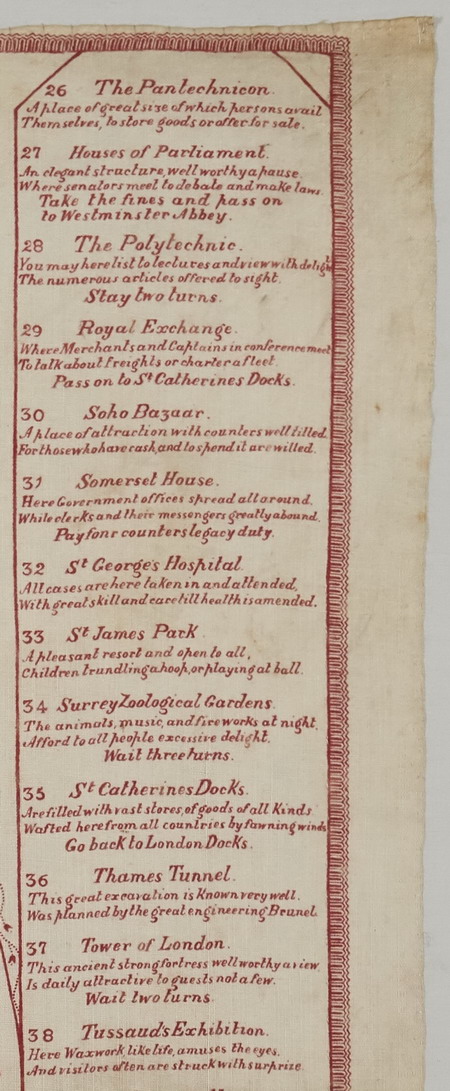 26 The Pantechnicon.
A place of great size of which persons avail
Themselves, to store goods or offer for sale.
27 Houses of Parliament.
An elegant structure, well worthy a pause.
Where senators meet to debate and make laws.
Take the fines and pass on
to Westminster Abbey.
28 The Polytechnic.
You may here list to lectures and view with delight
The numerous articles offered to sight.
Stay two turns.
29 Royal Exchange.
Where Merchants and Captains in conference meet
To talk about freights or charter a fleet.
Pass on to St Catherines Docks.
30 Soho Bazaar.
A place of attraction with counters well filled.
For those who have cash, and to spend it are willed.
31 Somerset House.
Here Government offices spread all around.
While clerks and their messengers greatly abound.
Pay fonr counters legacy duty.
32 St George's Hospital.
All cases are here taken in and attended,
With great skill and care till health is amended.
33 St James Park
A pleasant resort and open to all,
Children trundling a hoop, or playing at ball.
34 Surrey Zoological Gardens.
The animals, music, and fireworks at night,
Afford to all people excessive delight.
Wait three turns.
35 St Catherines Docks.
Are filled with vast stores, of goods of all Kinds
Wafted here from all countries by fawning winds
Go back to London Docks.
36 Thames Tunnel.
This great excavation is Known very well.
Was planned by the great engineering Brunel.
37 Tower of London.
This ancient strong fortress well worthy a view
Is daily attractive to guests not a few.
Wait two turns.
38 Tussaud's Exhibition.
Here Waxwork, like life, amuses the eyes.
And visitors often are struck with surprize